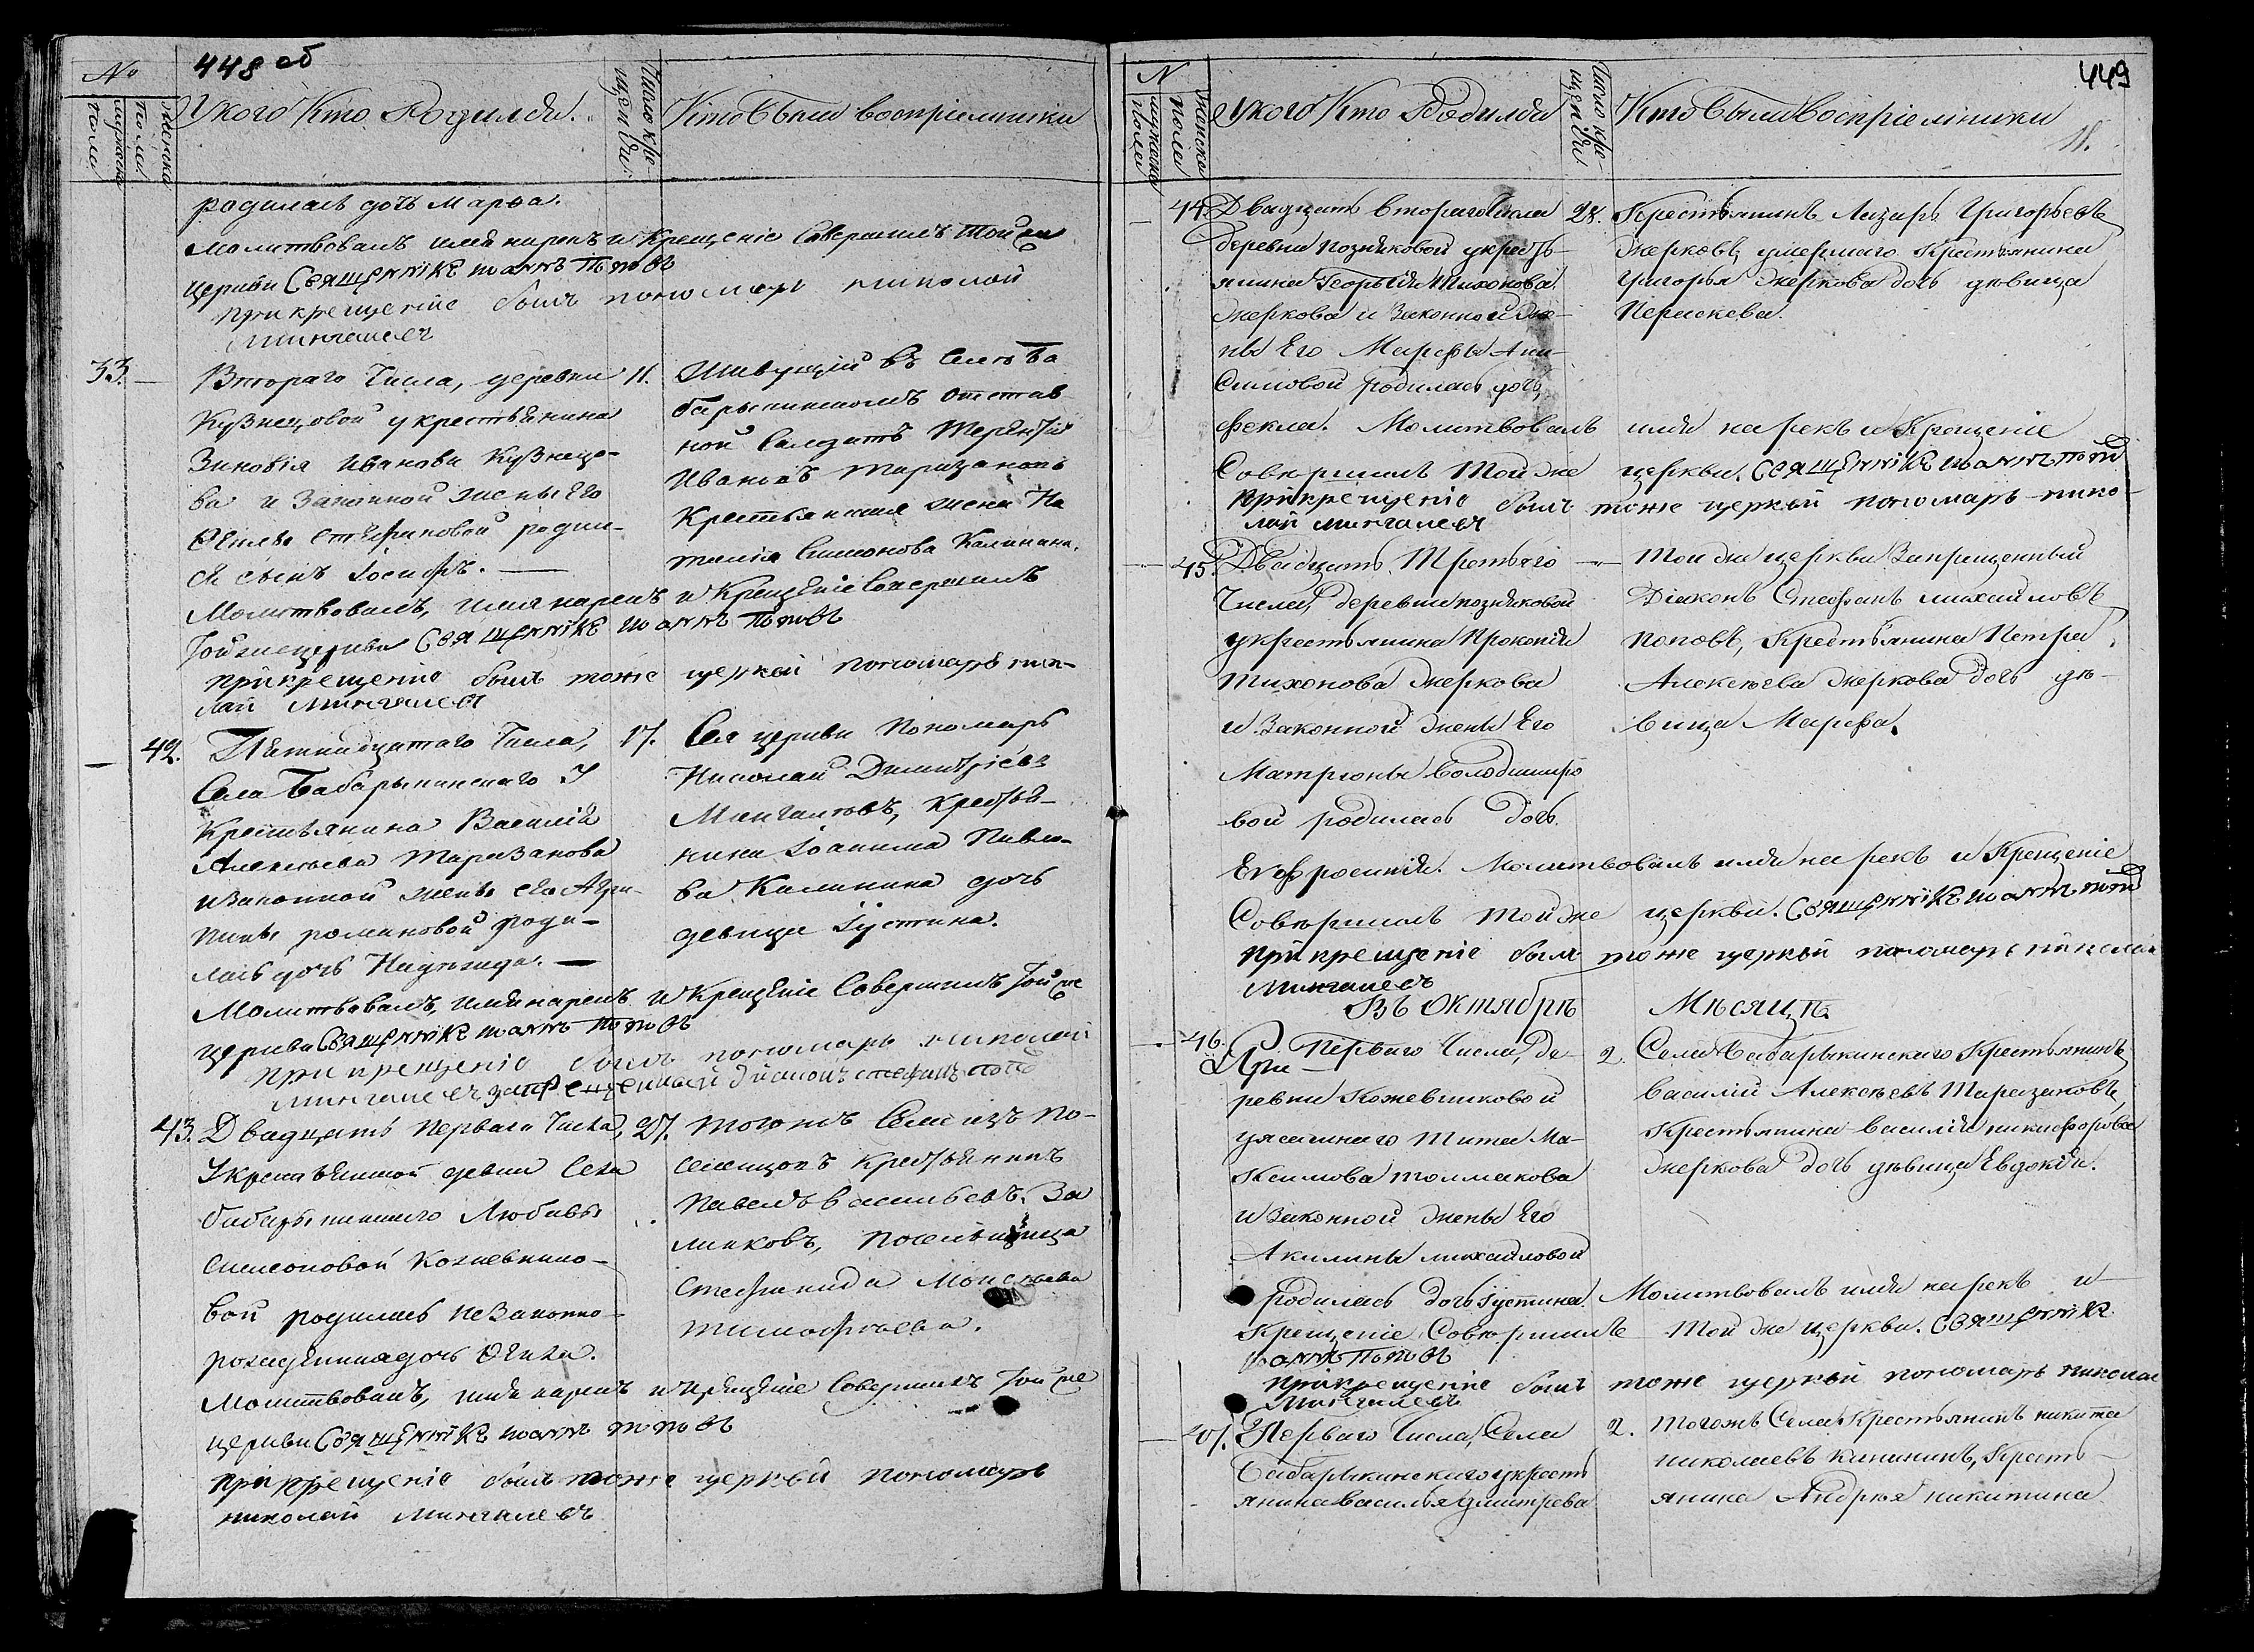 448 об
№
мужеска пола
женска пола
У кого Кто Родился.
Число крещенiя
Кто были воспрiемники
родилась дочь Марѳа.
Молитвовалъ имя нарекъ и Крещенiе Совершилъ Той же
церкви Священникъ Iоаннъ Поповъ
при крещенiе былъ пономарь николай
Мингалевъ
33. —
Втораго Числа, деревни
11.
Кузнецовой у крестьянина
Зиновiя Иванова Кузнецо-
ва и Законной жены Его
Стефановой родил-
ся сынъ Iосифъ. —
Живущiй въ Селѣ Ба
барыкинскомъ отстав
ной Салдатъ Терентiй
Ивановъ Таразановъ
Крестьянская жена На
талiя Симонова Калинина.
Молитвовалъ, имя нарекъ и Крещенiе Совершилъ
Той же церкви Священникъ Iоаннъ Поповъ
при крещенiе былъ тоже церкви пономарь нико-
лай Мингалевъ
— 42.
Пятнадцатаго Числа,
17.
Села Бабарыкинскаго У
Крестьянина Василiя
Алексѣева Таразанова
и Законной жены его Агри-
пины романовой роди-
лась дочь Надежда. —
Сея церкви Пономарь
Николай Димитрiевъ
Мингалевъ, Крестья-
нина Iоанина Павло-
ва Калинина дочь
девица Iустина.
Молитвовалъ, имя нарекъ и Крещенiе Совершилъ Той же
церкви Священникъ Iоаннъ Поповъ
при крещенiе былъ пономарь николай
Мингалевъ запрещенный дiаконъ стефанъ попов
43.
Двадцать Перваго Числа,
27.
У крестьянской девки Села
бабарыкинскаго Любавы
Симеоновой Кожевнико-
вой родилась не Законно-
рожденная дочь Ѳекла.
Тогожъ Села изъ по-
селенцовъ Крестьянинъ
Павелъ васильевъ За
ликовъ, поселенщица
Стефанида Моисѣева
Тимофѣева.
Молитвовалъ, имя нарекъ и Крещенiе Совершилъ Той же
церкви Священникъ Iоаннъ Поповъ
при крещенiе былъ тоже церкви пономарь
николай Мингалевъ
449
11.
N
мужеска пола
женска пола
У кого Кто Родился
Число крещенiя
Кто были Воспрiемники
44.
Двадцать втораго Числа
28.
деревни позняковой у кресть-
янина Георгiя Тихонова
Жеркова и Законной же-
ны Его Марфы Ани-
симовой родилась дочь,
Крестьянинъ Лазарь Григорьевъ
Жерковъ, умершаго Крестьянина
Григорья Жеркова дочь дѣвица
Параскева.
фекла. Молитвовалъ имя нарекъ и Крещенiе
Совершилъ Той же церкви. Священникъ Iоаннъ Попов
при крещенiе былъ тоже церкви пономарь нико-
лай мингалевъ
45.
Двадцать Третьяго
—"—
Числа, деревни позняковой
у крестьянина Прокопiя
Тихонова Жеркова
и Законной жены Его
Матрены Володимиро
вой родилась дочь
Той же церкви Запрещенный
Дiаконъ Стефанъ михайловъ
поповъ, Крестьянина Петра
Алексѣева Жеркова дочь дѣ-
вица Марфа.
Евфросинiя. Молитвовалъ имя нарекъ и Крещенiе
Совершилъ Той же церкви. Священникъ Iоаннъ Попов
при крещенiе былъ тоже церкви пономарь николай
мингалевъ
Въ Октябрѣ Мѣсяцѣ.
46.
Перваго Числа, де-
2.
ревни Кожевниковой
у ясашнаго Тита Ма-
ксимова толмакова
и Законной жены Его
Акилины михайловой
Села Бабарыкинскаго Крестьянинъ
Василiй Алексѣевъ Таразановъ,
Крестьянина василiя никифорова
Жеркова дочь дѣвица Евдокiя.
родилась дочь Iустина. Молитвовалъ имя нарекъ и
Крещенiе Совершилъ Той же церкви. Священникъ
Iоаннъ Поповъ
при крещенiе былъ тоже церкви пономарь николай
Мингалевъ
47.
Перваго Числа, Села
2.
Бабарыкинскаго у кресть
янина Василья Дмитрева
Тогожъ Села Крестьянинъ никита
николаевъ кининъ, Кресть-
янина Андрея никитина